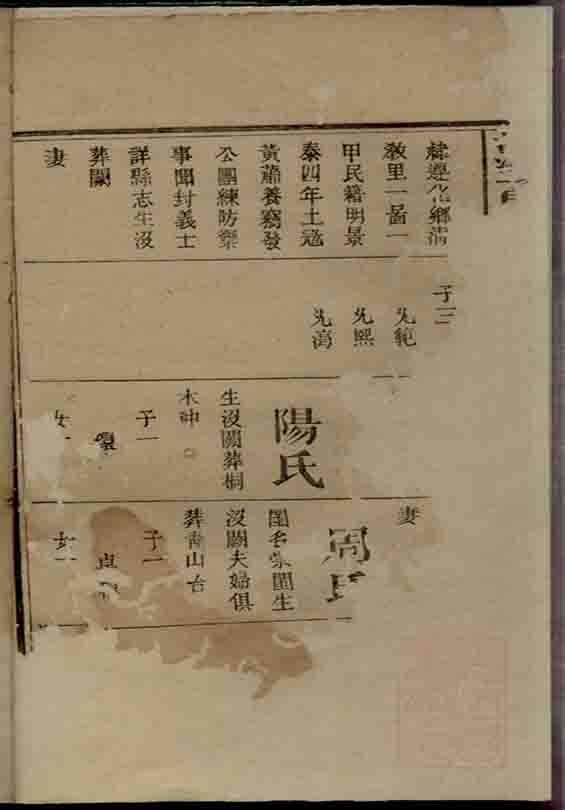 隸遵化鄉清
教里一啚一
甲民籍明景
泰四年土寇
黃蕭養竊發
公團練防禦
事聞封義士
詳縣志生沒
葬闕
妻
子三
允範
允熙
允高
陽氏
生沒闕葬桐
木冲
子一
女一
妻
周氏
閨名
閏生
沒闕夫婦俱
葬青山台
子一
女一